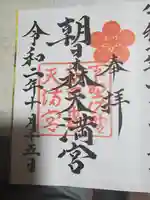 奉拝
朝日森天満宮
天満宮
令和二年十月十五日